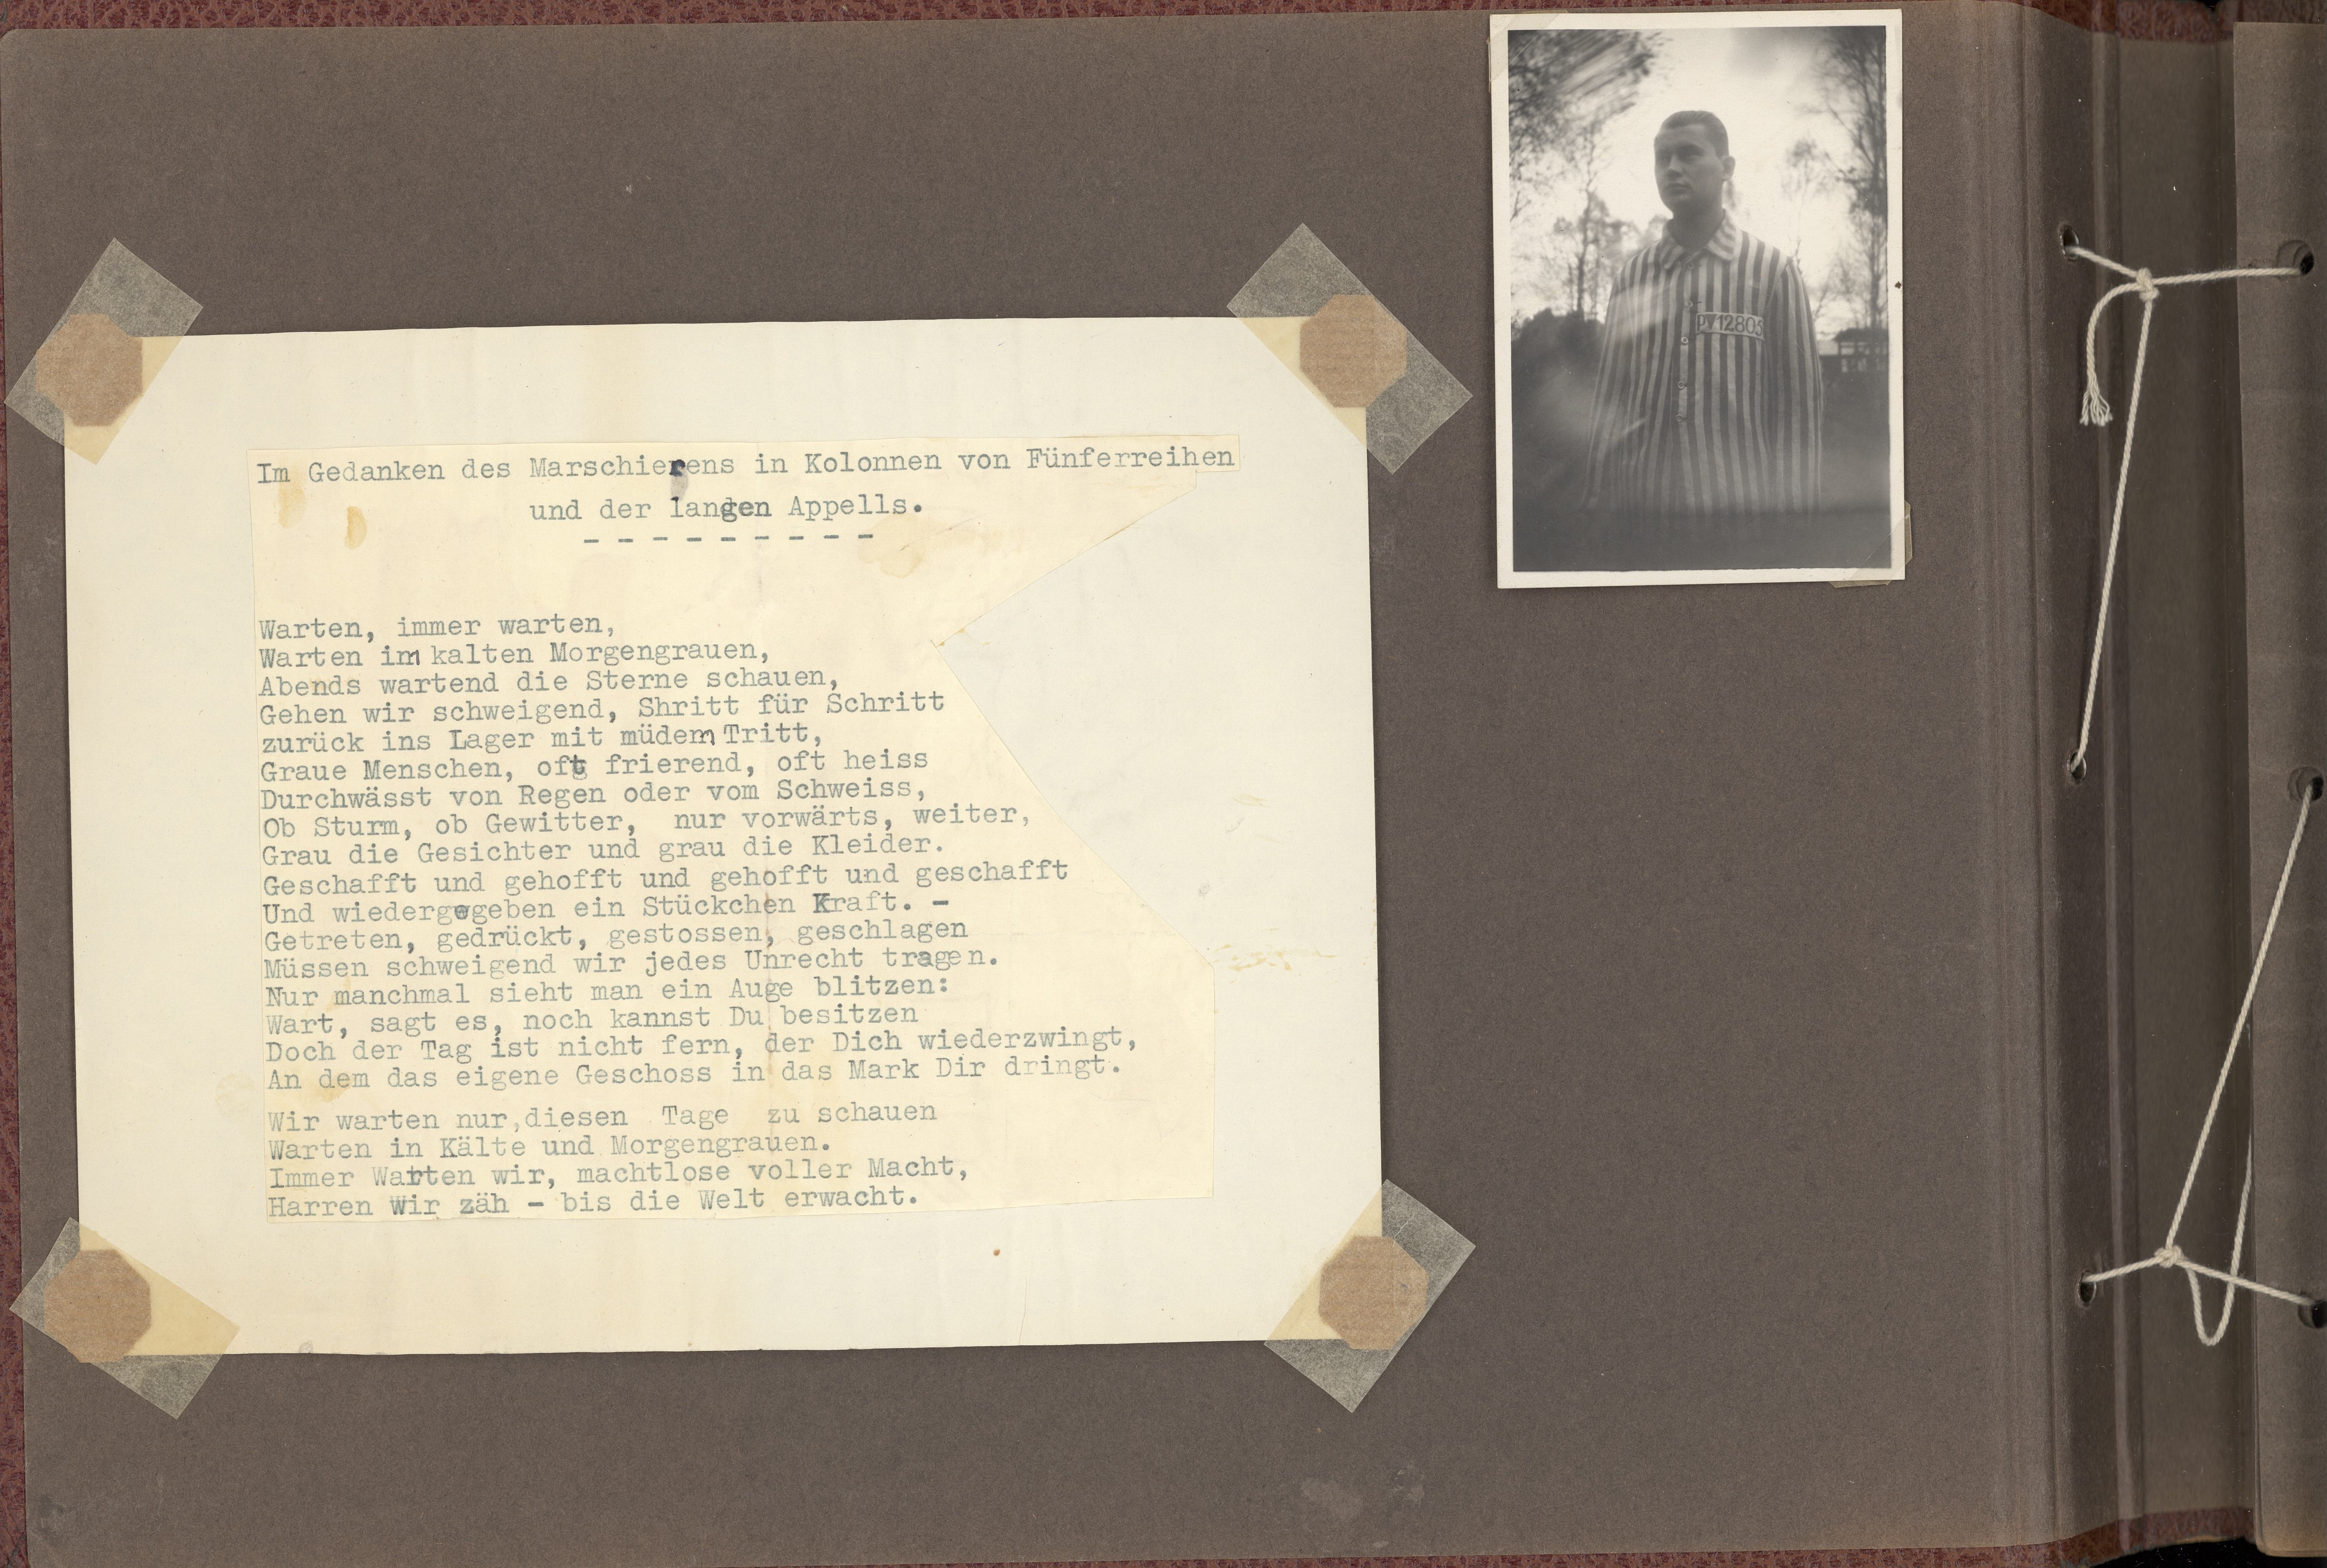 Im Gedanken des Marschierens in Kolonnen von Fünferreihen
und der langen Appells.
- - - - - - - - -
Warten, immer warten,
Warten im kalten Morgengrauen,
Abends wartend die Sterne schauen,
Gehen wir schweigend, Shritt für Schritt
zurück ins Lager mit müdem Tritt,
Graue Menschen, oft frierend, oft heiss
Durchwässt von Regen oder vom Schweiss,
Ob Sturm, ob Gewitter, nur vorwärts, weiter,
Grau die Gesichter und grau die Kleider.
Geschafft und gehofft und gehofft und geschafft
Und wiedergegeben ein Stückchen Kraft. -
Getreten, gedrückt, gestossen, geschlagen
Müssen schweigend wir jedes Unrecht tragen.
Nur manchmal sieht man ein Auge blitzen:
Wart, sagt es, noch kannst Du besitzen
Doch der Tag ist nicht fern, der Dich wiederzwingt,
An dem das eigene Geschoss in das Mark Dir dringt.
Wir warten nur,diesen Tage zu schauen
Warten in Kälte und Morgengrauen.
Immer Warten wir, machtlose voller Macht,
Harren Wir zäh - bis die Welt erwacht.
12805